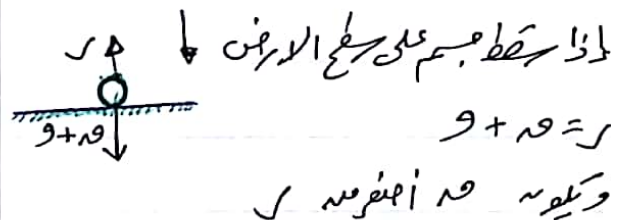 إذا سقط جسم على سطح الارض
ر = ق + و
وتكون ق أصغر من ر
ر
ق + و